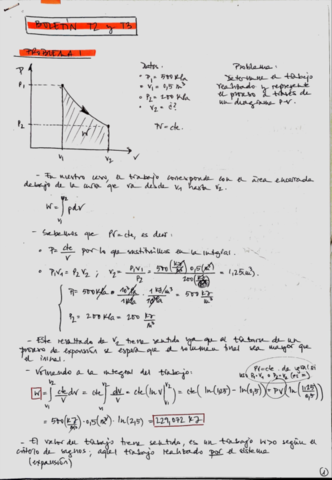 BOLETÍN T2 y T3
PROBLEMA 1
Datos:
P₁ = 500 kPa
V₁ = 0,5 m³
P₂ = 200 kPa
V₂ = ¿?
PV = cte.
Problema:
Determine el trabajo
realizado y represente
el proceso a través de
un diagrama P-V.
P
P₁
P₂
W
V₁
V₂
V
- En nuestro caso, el trabajo corresponde con el área encerrada
debajo de la curva que va desde V₁ hasta V₂.
W = ∫ pdV
- Sabemos que PV = cte, es decir:
P = cte/V por lo que sustituimos en la integral.
P₁V₁ = P₂V₂ ; V₂ = P₁V₁/P₂ = 500 (kJ/m³) 0,5 (m³) / 200 (kJ/m³) = 1,25 m³
P₂ = 200 kPa = 200 kJ/m³
- Este resultado de V₂ tiene sentido ya que al tratarse de un
proceso de expansión se espera que el volumen final sea mayor que
el inicial.
- Volviendo a la integral del trabajo:
W = ∫ cte/V dV = cte ∫ dV/V = cte (ln V) = cte (ln(1,25) − ln(0,5)) = PV ln(1,25/0,5)
= 500 (kJ/m³) · 0,5 (m³) · ln(2,5) = 229,072 kJ
- El valor de trabajo tiene sentido, es un trabajo W>0 según el
criterio de signos; aquel trabajo realizado por el sistema
(expansión)
1